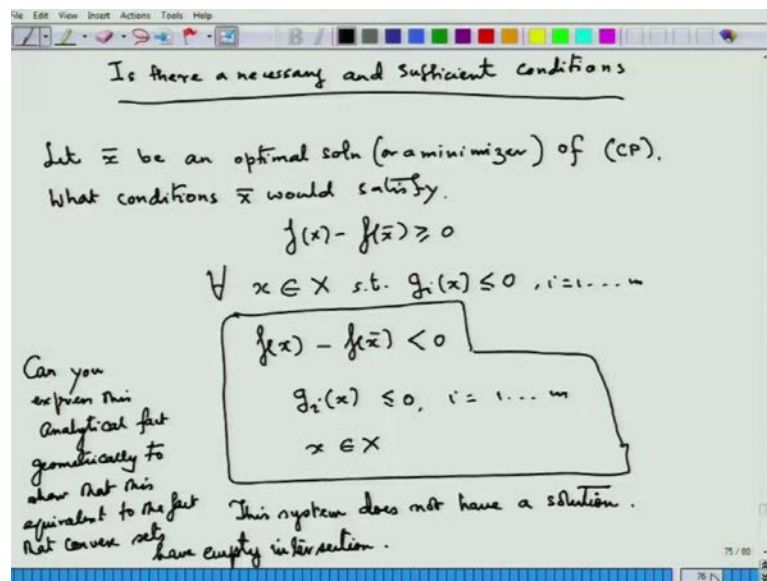 File Edit View Insert Actions Tools Help
Is there a necessary and sufficient conditions
Let x̄ be an optimal soln (or a minimizer) of (CP).
What conditions x̄ would satisfy.
f(x) - f(x̄) ≥ 0
∀ x ∈ X s.t. gᵢ(x) ≤ 0, i=1....m
f(x) - f(x̄) < 0
gᵢ(x) ≤ 0, i = 1... m
x ∈ X
This system does not have a solution.
Can you
express this
Analytical fact
geometrically to
show that this
equivalent to the fact
that convex sets
have empty intersection.
75 / 80
76